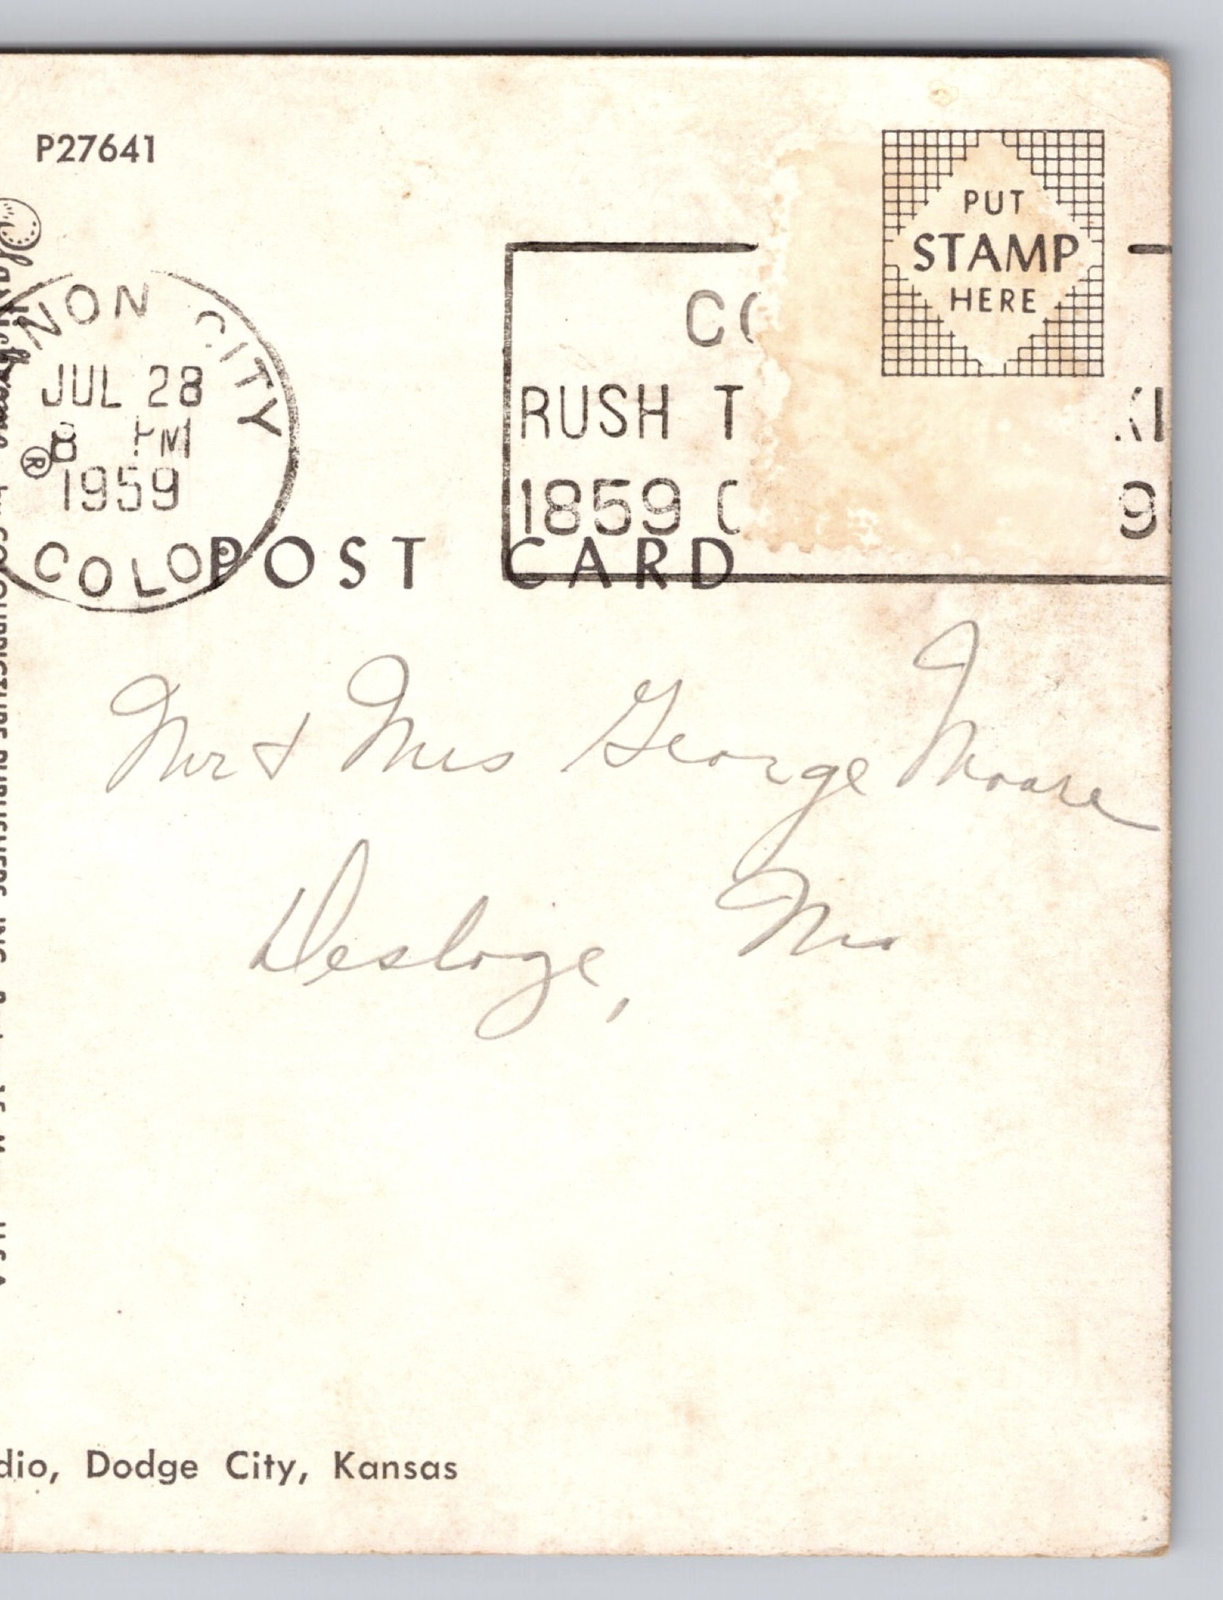 P27641
PUT
STAMP
HERE
NON CITY
JUL 28
8 PM
1959
COLO
RUSH T
1859
POST CARD
Mr & Mrs George Moore
Desloge, Mo
dio, Dodge City, Kansas
Plastichrome ®